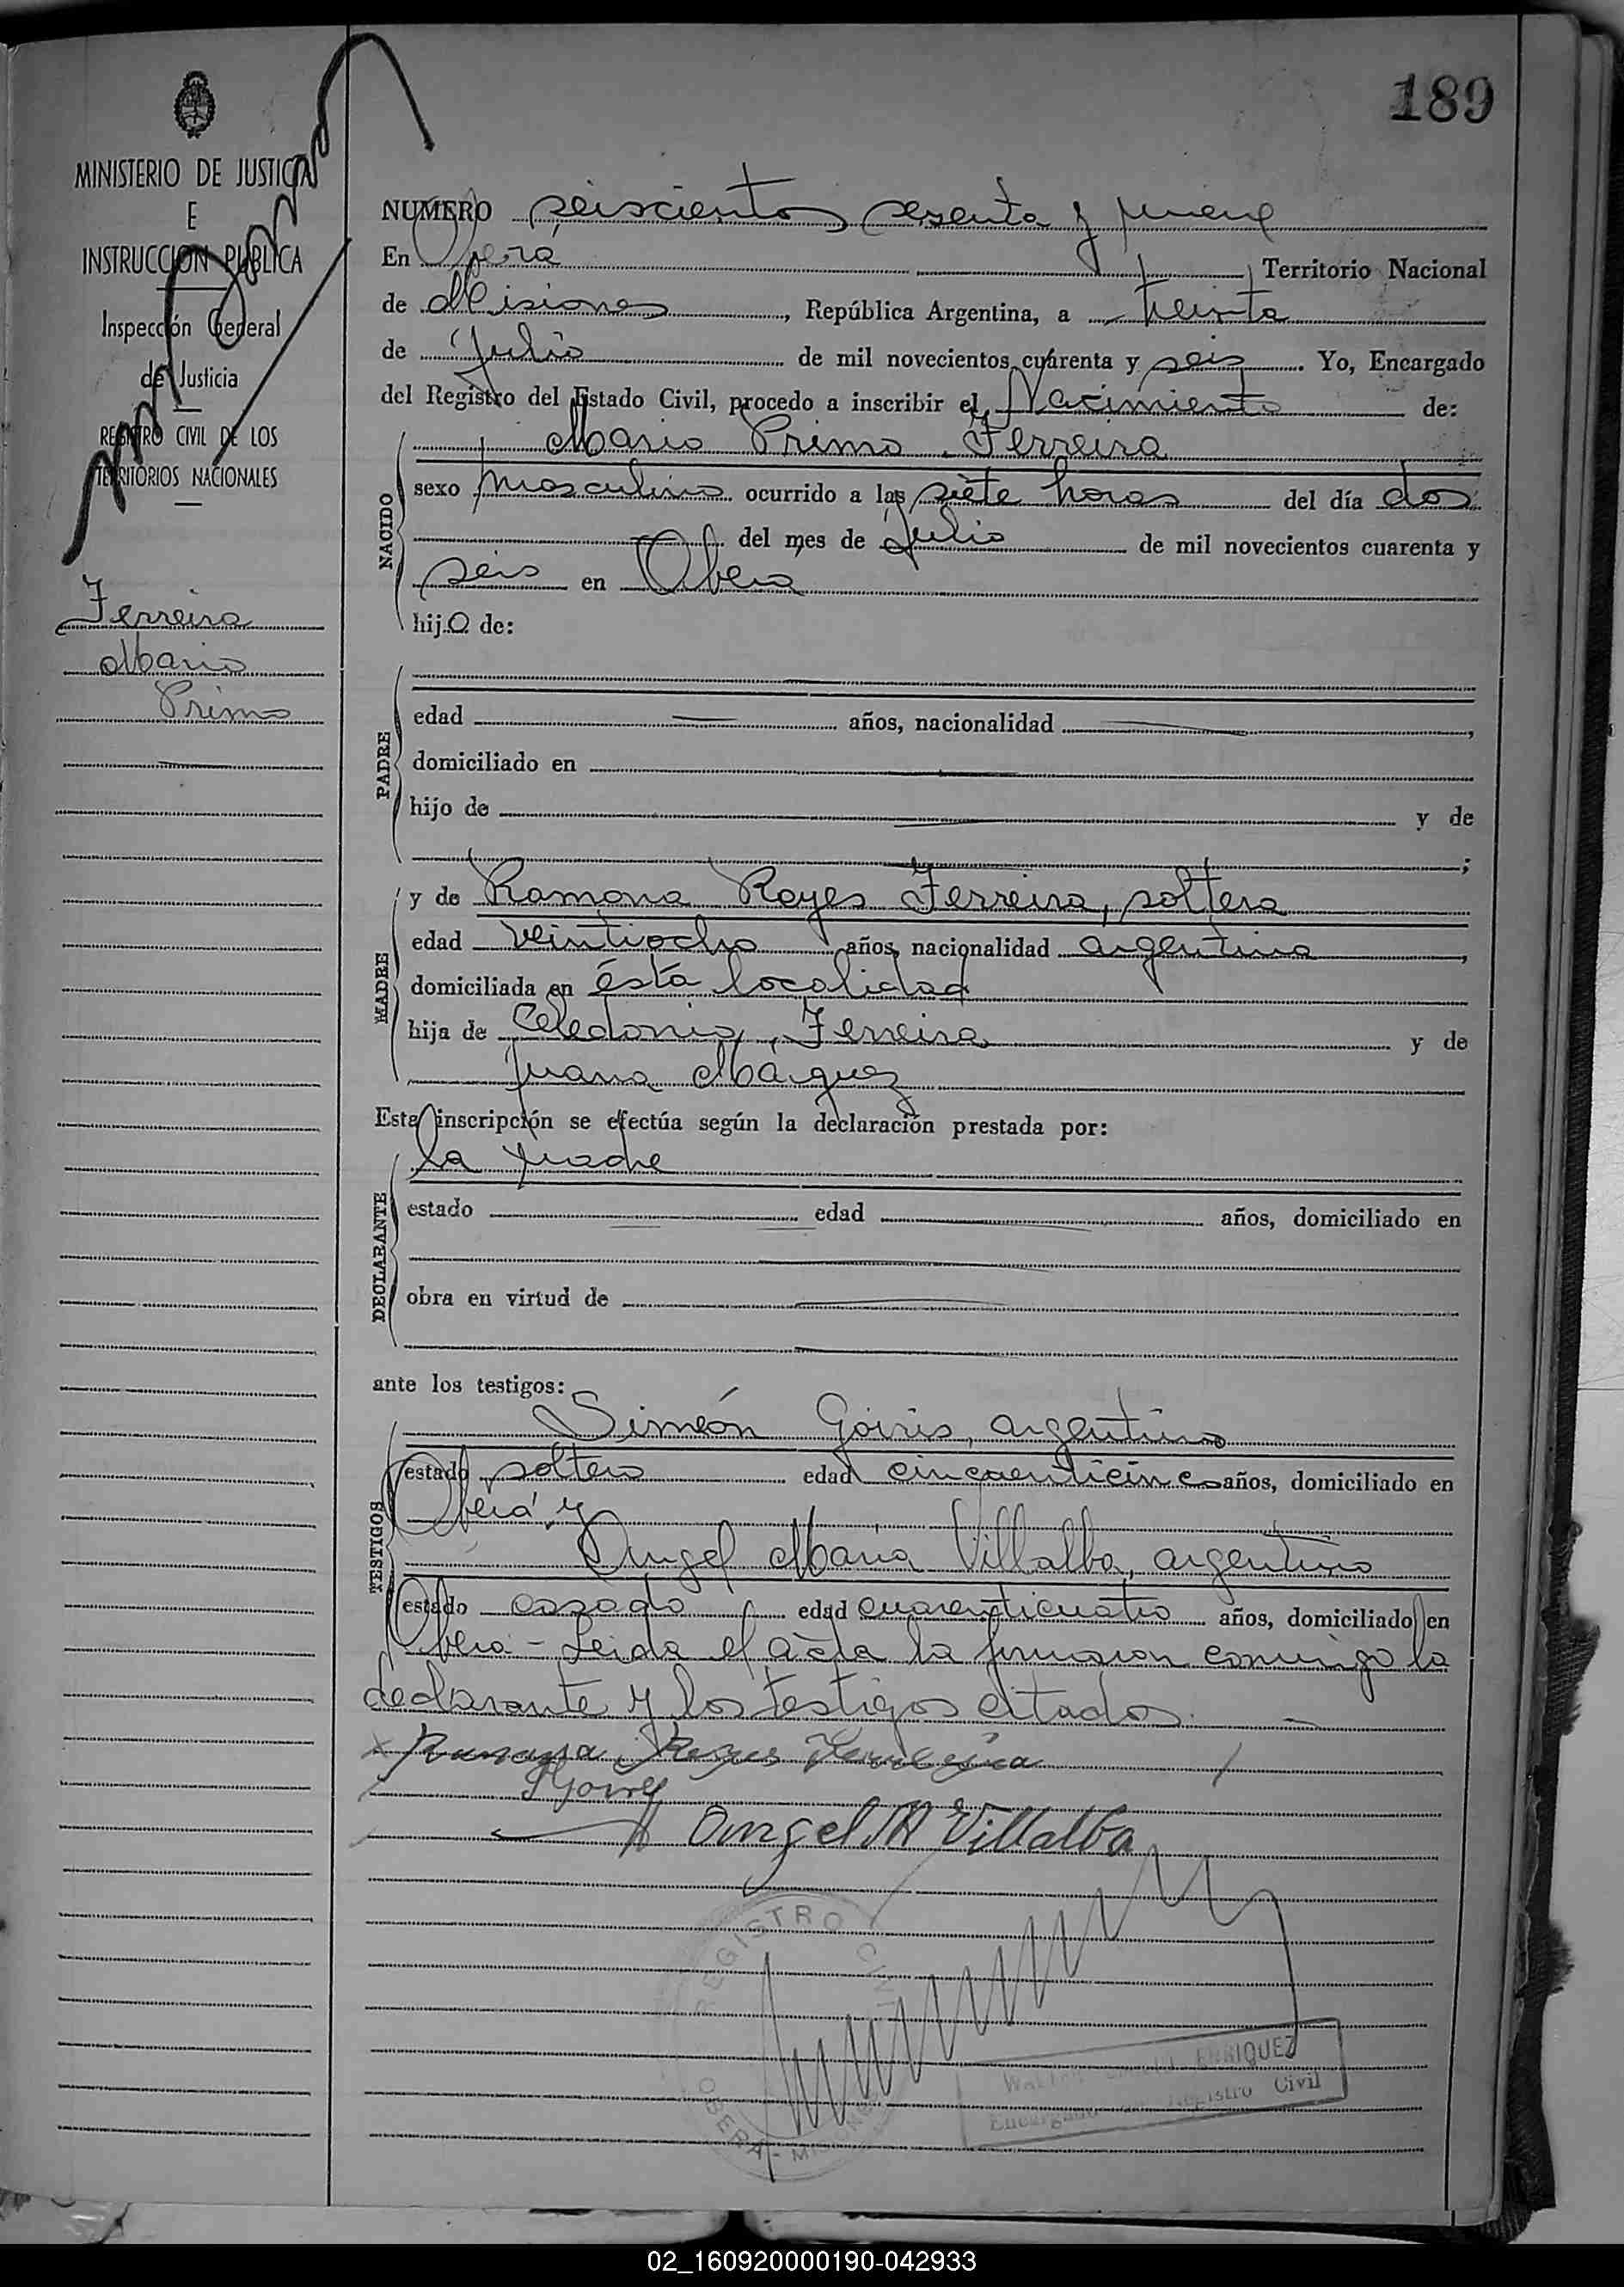 189
MINISTERIO DE JUSTICIA
E
INSTRUCCION PUBLICA
Inspección General
de Justicia
REGISTRO CIVIL DE LOS
TERRITORIOS NACIONALES
Ferreira
Mario
Primo
NUMERO seiscientos sesenta y nueve
En Oberá Territorio Nacional
de Misiones, República Argentina, a treinta
de Julio de mil novecientos cuarenta y seis. Yo, Encargado
del Registro del Estado Civil, procedo a inscribir el Nacimiento de:
NACIDO
Mario Primo Ferreira
sexo masculino ocurrido a las siete horas del día dos
del mes de Julio de mil novecientos cuarenta y
seis en Oberá
hijo de:
PADRE
edad años, nacionalidad ,
domiciliado en
hijo de y de
;
MADRE
y de Ramona Reyes Ferreira, soltera
edad veintiocho años, nacionalidad argentina,
domiciliada en ésta localidad
hija de Celedonio Ferreira y de
Juana Márquez
Esta inscripción se efectúa según la declaración prestada por:
DECLARANTE
la madre
estado edad años, domiciliado en
obra en virtud de
ante los testigos:
TESTIGOS
Simeón Goiris, argentino
estado soltero edad cincuenticinco años, domiciliado en
Oberá y
Angel María Villalba, argentino
estado casado edad cuarenticuatro años, domiciliado en
Oberá - Leida el acta la firmaron conmigo la
declarante y los testigos citados.
Ramona Reyes Ferreira
Angel M Villalba
REGISTRO CIVIL
OBERA - MISIONES
ENRIQUEZ
Encargado Registro Civil
02_160920000190-042933